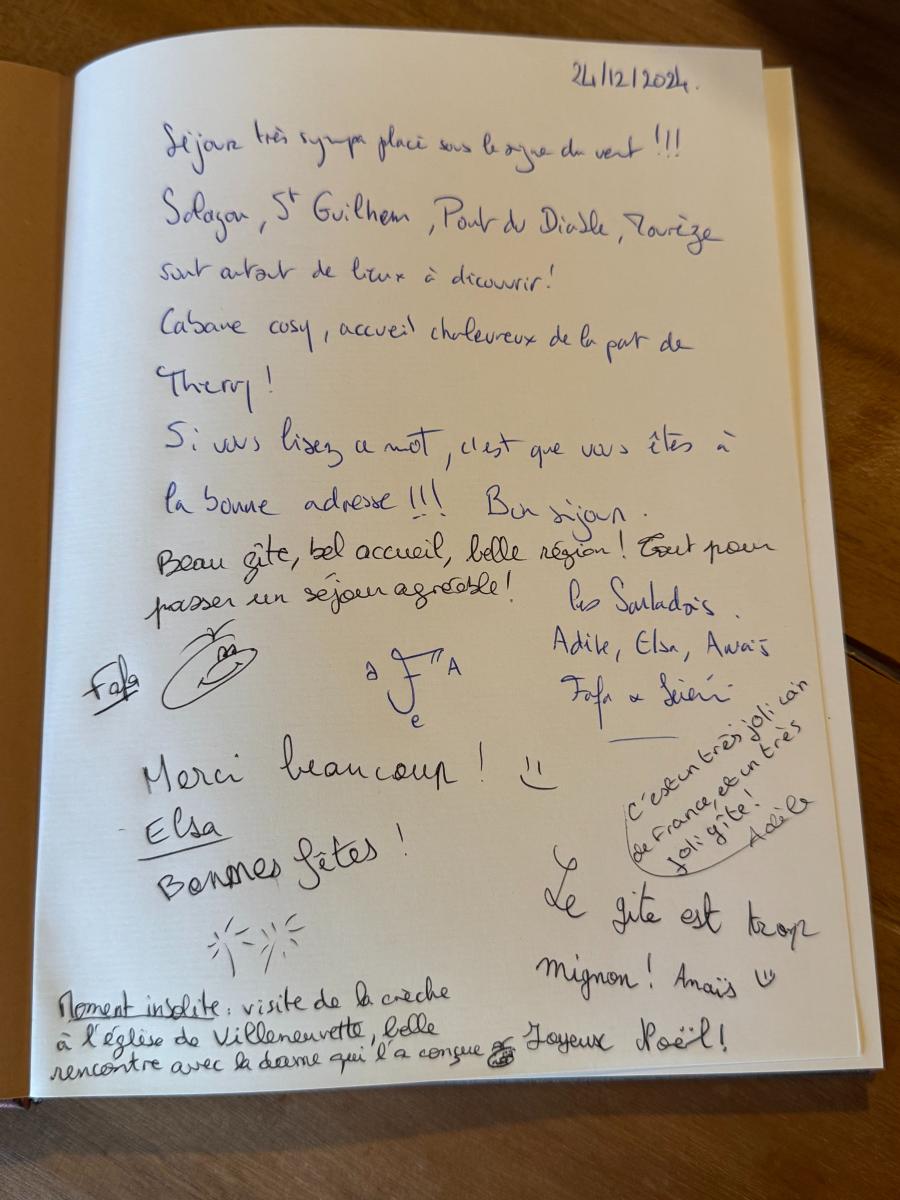 24/12/2024.
Séjour très sympa placé sous le signe du vent !!!
Salagou, St Guilhem, Pont du Diable, Mourèze
sont autant de lieux à découvrir !
Cabane cosy, accueil chaleureux de la part de
Thierry !
Si vous lisez ce mot, c'est que vous êtes à
la bonne adresse !!! Bon séjour.
Beau gîte, bel accueil, belle région ! Tout pour
passer un séjour agréable !
Les Sarladais.
Adèle, Elsa, Anaïs
Fafa &
Fafa
Merci beaucoup ! :)
Elsa
Bonnes fêtes !
C'est un très joli coin
de France, et un très
joli gîte !
Adèle
Le gîte est trop
mignon ! Anaïs :)
Joyeux Noël !
Moment insolite : visite de la crèche
à l'église de Villeneuvette, belle
rencontre avec la dame qui l'a conçue